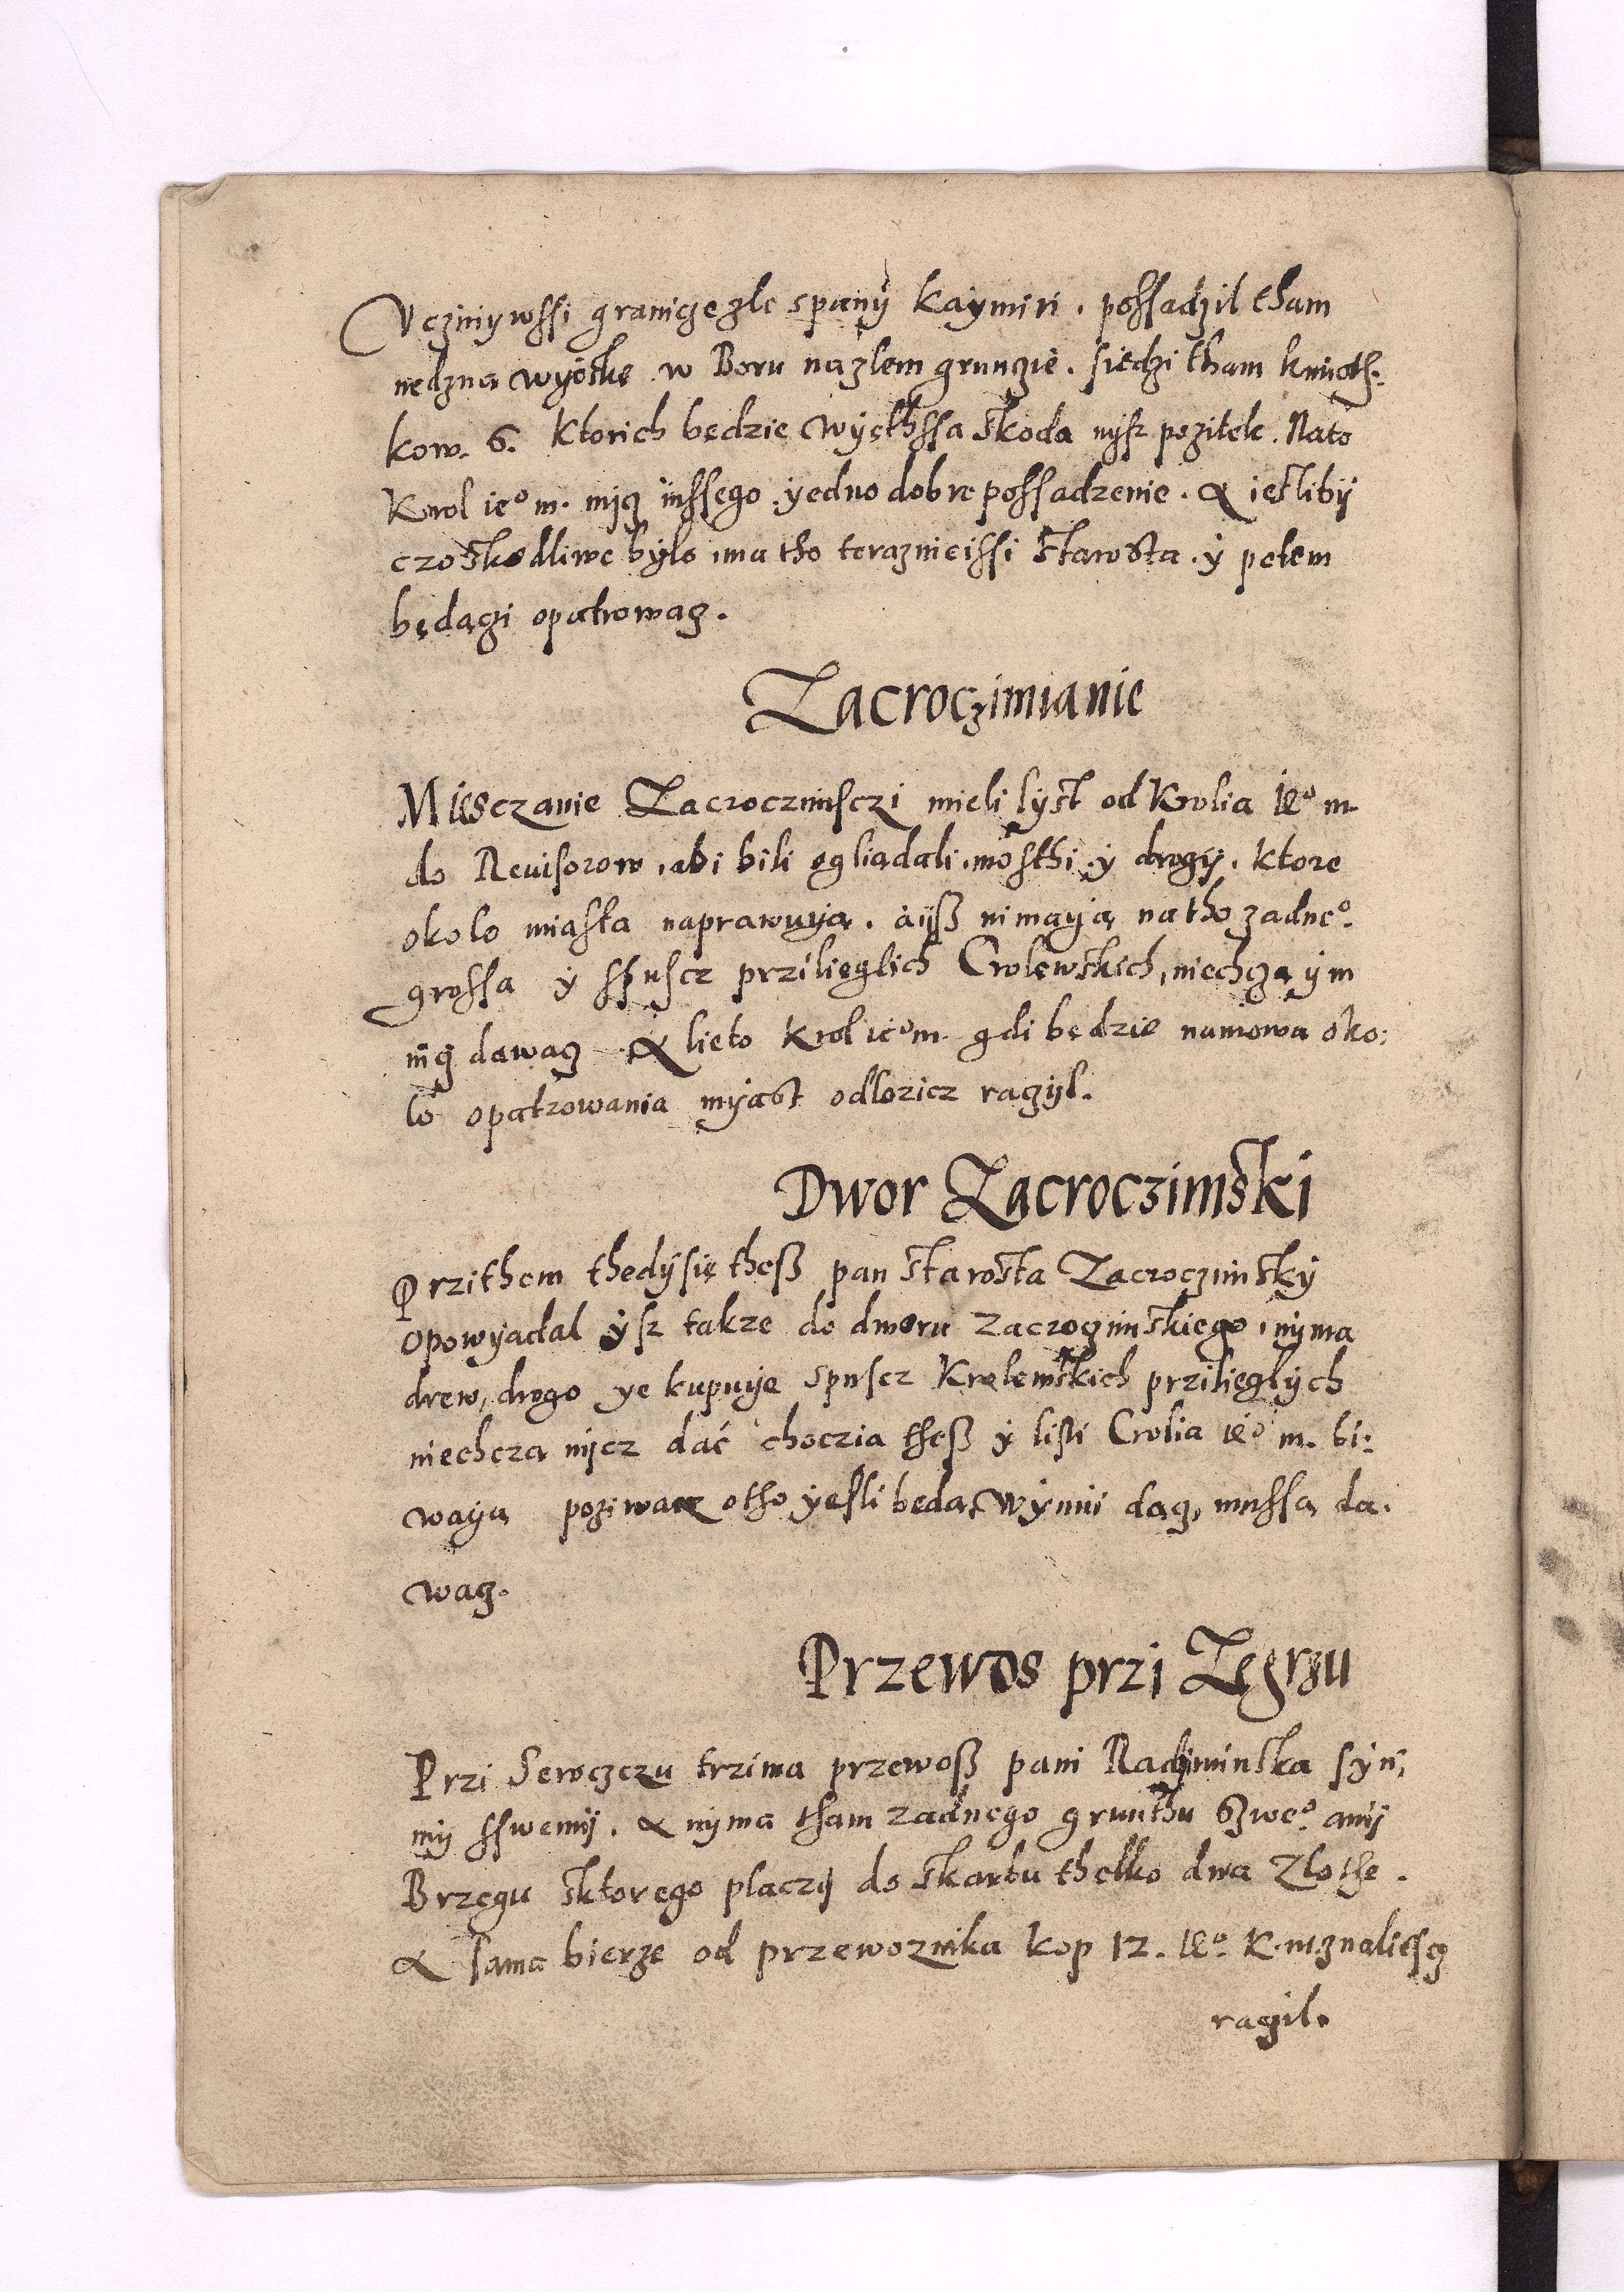 Vczniywssi granicze zle spany Kaymiri. possadzil tham
nedzna wyoske w Boru na zlem grunczie. siedzi tham kmioth:
kow. 6. Ktorich będzie wyęthssa skoda nysz pozitek. Nato
Krol ieº m. mijcz inssego yedno dobre possadzenie. A iesliby
czo skodliwe bylo ma tho teraznieissi starosta. y potem
będączi opatrowacz.
Zacroczimianie
Miesczanie Zacroczimsczi mieli lyst od Krolia ieº m.
do Reuisorow, abi bili ogliadali, mosthi y drogy. ktore
okolo miasta naprawuya. ayß nimayą na tho zadneº
grossa y spuscz przilięglich Crolewskich, niechczą ym
nicz dawacz. A lieto Krol ieº m. gdi będzie namowa oko:
lo opatrowania myast odlozicz raczyl.
Dwor Zacroczimski
Przithem thedy się theß pan starosta Zacroczimsky
opowyadal ysz takze do dworu Zacroczimskiego, nyma
drew, drogo ye kupuye spuscz Krolewskich prziliegłych
niechcza nijcz dać choczia theß y listi Crolia ieº m. bi:
waya poziwacz otho yesli beda winni dacz, mussą da.
wacz.
Przewos przi Zęgrzu
Przi Seroczczu trzima przewoß pani Radziminska syn,
my sswemy. A nyma tham zadnego grunthu szweº. any
Brzegu sktorego placzy do skarbu thelko dwa Zlothe.
A sama bierze od przewoznika kop 12. ieº K. m. znaliescz
raczil.